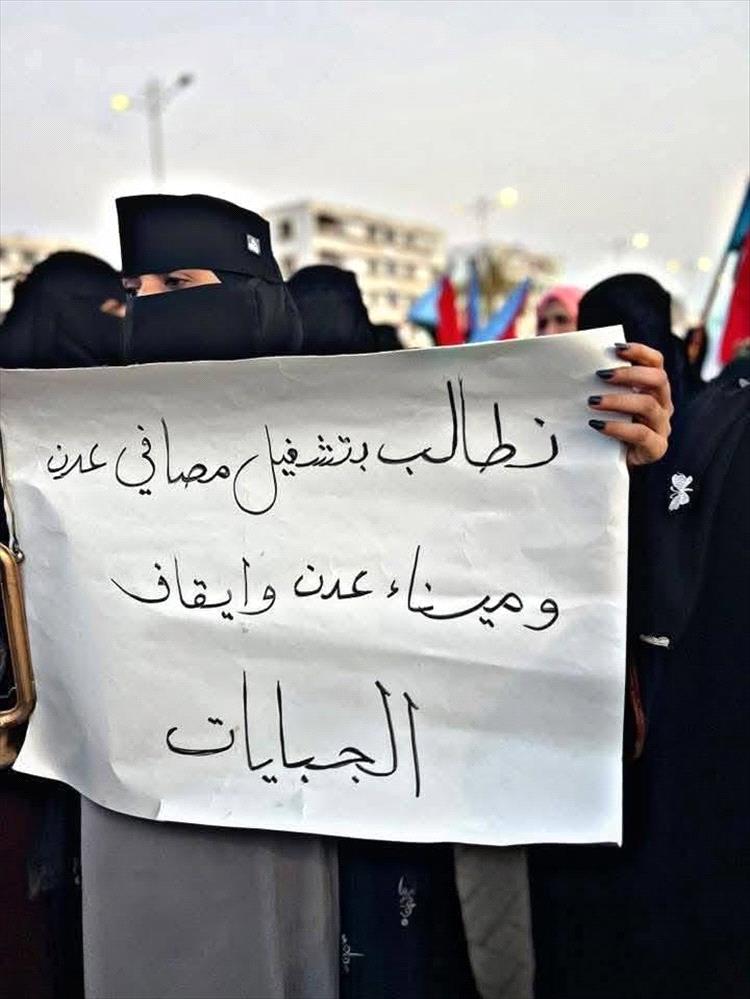 نطالب بتشغيل مصافي عدن
وميناء عدن وايقاف
الجبايات